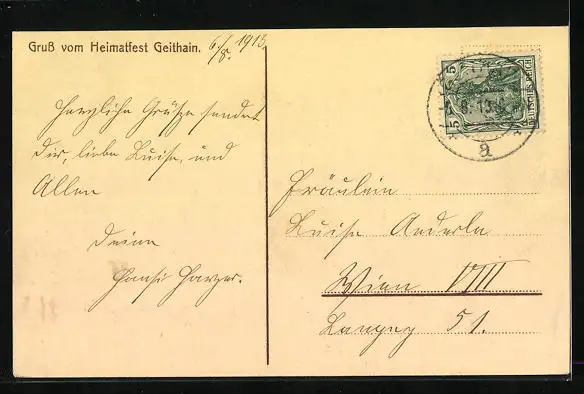 Gruß vom Heimatfest Geithain. 6./8. 1913.
Herzliche Grüße sendet
Dir, liebe Luise, und
Allen
Deine
DEUTSCHES REICH
5 5
a
Fräulein
Luise Anderle
Wien VIII
Langeg 51.